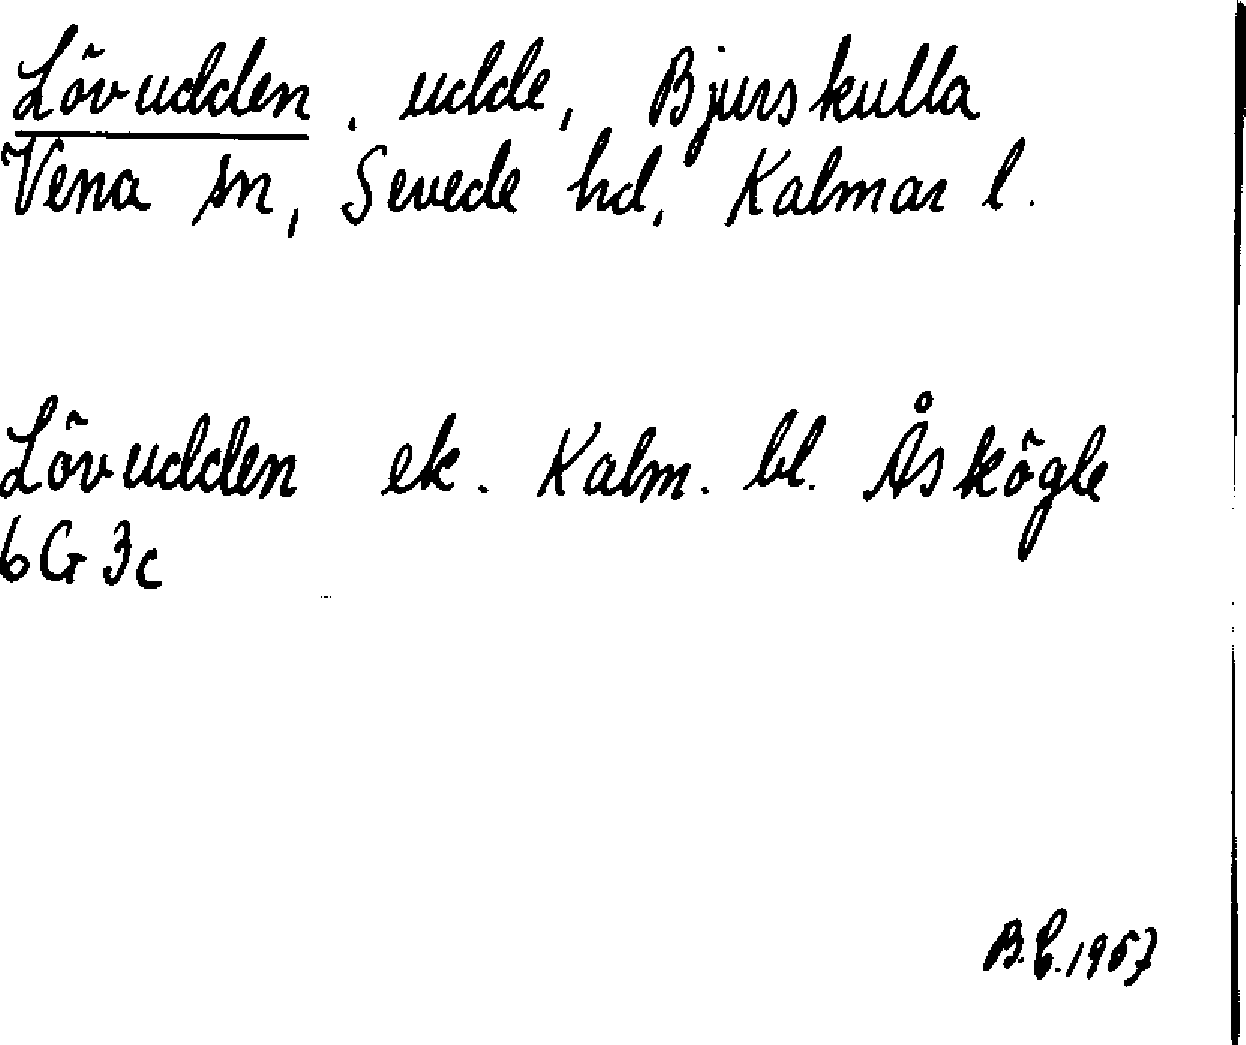 Lövudden. udde, Bjurskulla
Vena sn, Sevede hd, Kalmar l.
Lövudden ek. Kalm. bl. Åskögle
6G 3c
B.E. 1967